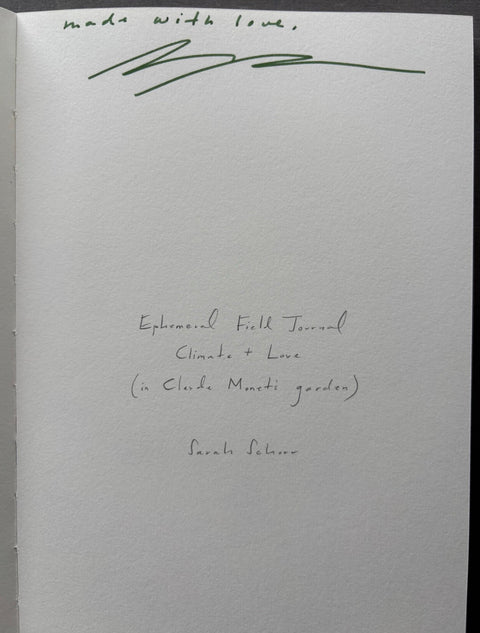 made with love.
Ephemeral Field Journal
Climate + Love
(in Claude Monet's garden)
Sarah Schorr